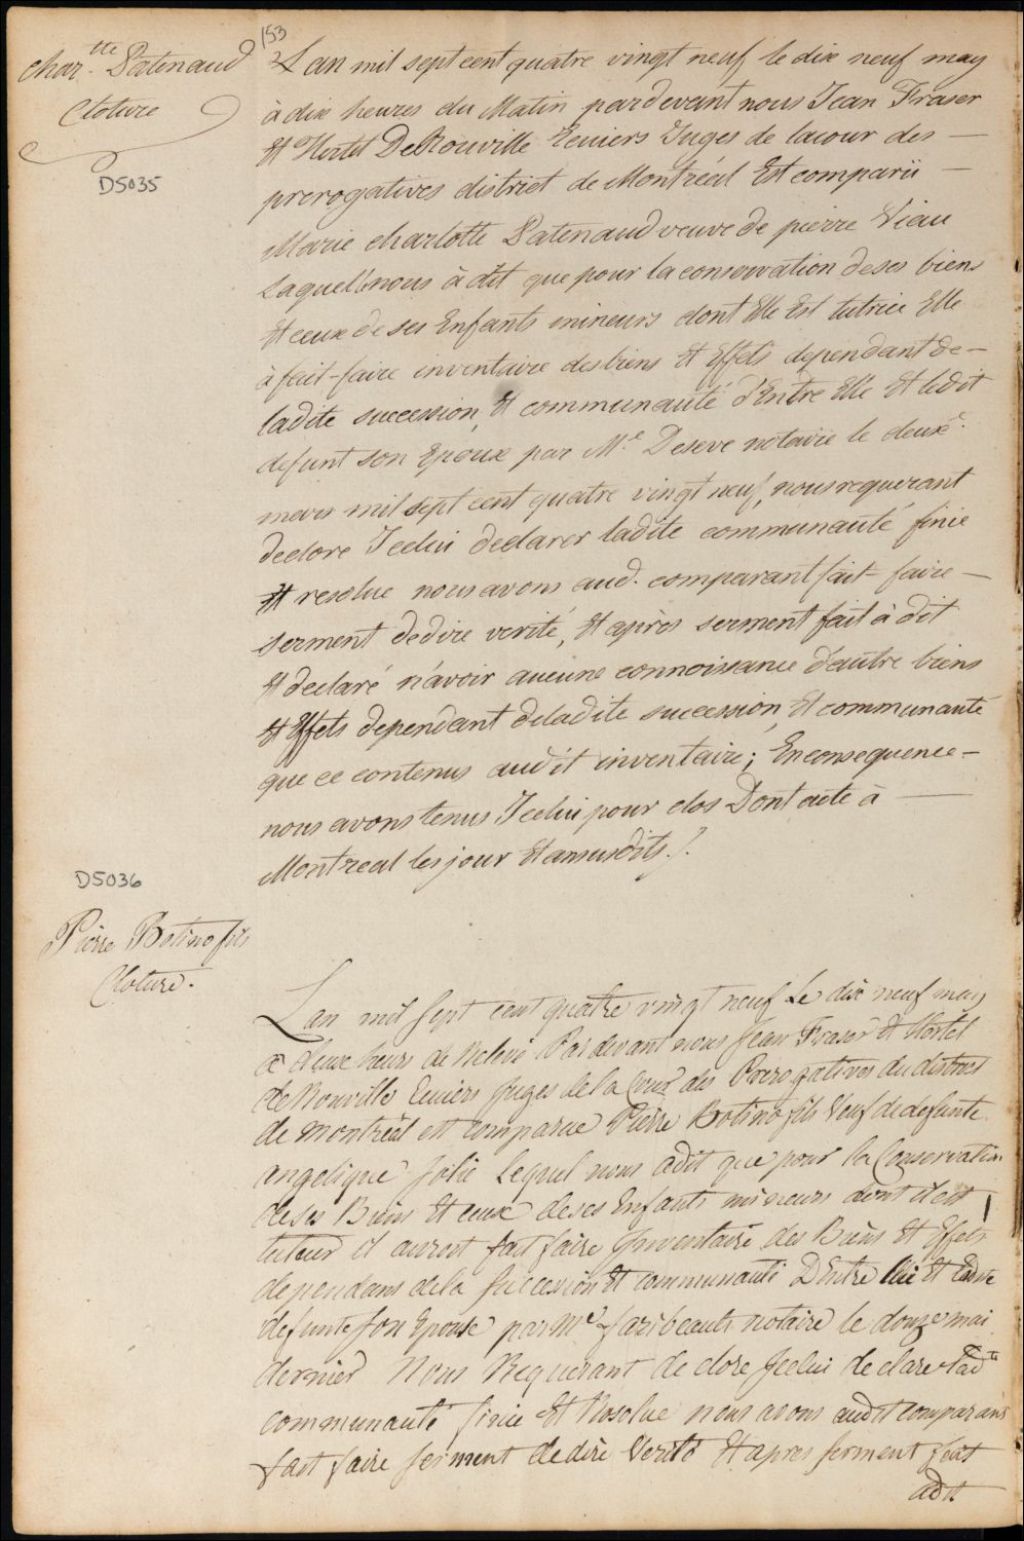 153
Char.tte Patenaud
Cloture
D5035
Lan mil sept cent quatre vingt neuf le dix neuf may
à dix heures du Matin pardevant nous Jean Fraser
Et Hertel DeRouville Ecuiers Juges de lacour des
prerogatives district de Montréal Est comparü
Marie charlotte Patenaud veuve de pierre Viau
Laquelle nous à dit que pour la conservation deses biens
Et ceux de ses Enfants mineurs dont Elle Est tutrice Elle
à fait-faire inventaire des biens Et Effets dependant de
ladite succession, Et communauté d'Entre Elle Et ledit
defunt son Epoux par Me. Deseve notaire le deuxe.
mars mil sept cent quatre vingt neuf, nous requerant
declore Icelui declarer ladite communauté finie
Et resolue nous avons aud. comparant fait-faire
serment dedire verité, Et après serment fait à dit
Et declaré n'avoir aucune connoissance d'autre biens
Et Effets dependant deladite succession, Et communauté
que ce contenus audit inventaire; Enconsequence
nous avons tenus Icelui pour clos Dont acte à
Montreal les jour Et an susdits ./.
D5036
Pierre Botino fils
Cloture.
Lan mil sept cent quatre vingt neuf Le dix neuf may
a deux heurs de Relevé Pardevant nous Jean Fraser & Hertel
de Rouville Ecuiers Juges de la Cour des Prerogatives du district
de Montréal est comparue Pierre Botino fils Veuf de defunte
angelique Jolie Lequel nous adit que pour la Conservation
deses Biens Et ceux deses Enfants mineurs dont il est
tuteur il auroit fait faire Inventaire des Biens Et Effets
dependans dela succession Et communauté DEntre Lui Et Ladite
defunte son Epouse par Me faribeault notaire le douze mai
dernier Nous Requerant de clore Icelui declarer Ladte
communauté finie Et Resolue nous avons audit comparans
fait faire serment dedire Verité Et apres serment fait
adit